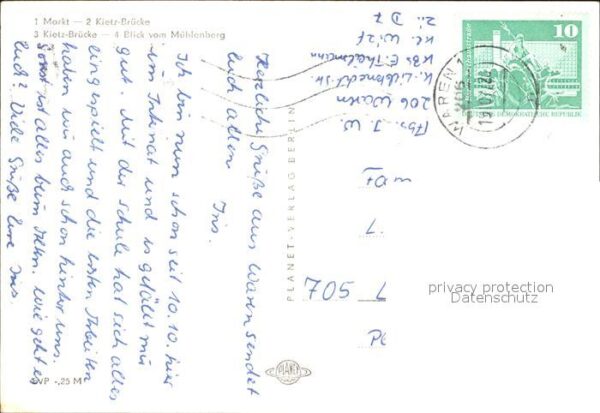 1 Markt — 2 Kietz-Brücke
3 Kietz-Brücke — 4 Blick vom Mühlenberg
Herzliche Grüße aus Waren sendet
Euch allen
Ines.
Ich bin nun schon seit 10.10. hier
im Internat und es gefällt mir
gut. Mit der Schule hat sich alles
eingespielt und die ersten Arbeiten
haben wir auch schon hinter uns.
Sonst ist alles beim Alten. Wie geht es
Euch? Viele Grüße Eure Ines.
PLANET-VERLAG BERLIN
PLANET
EVP -,25 M
Abs. I. W
206 Waren
K. Liebknecht Str.
KBS E. Thälmann
Kl.
Zi. D 7
WAREN 1
206
10
DEUTSCHE DEMOKRATISCHE REPUBLIK
705
privacy protection
Datenschutz